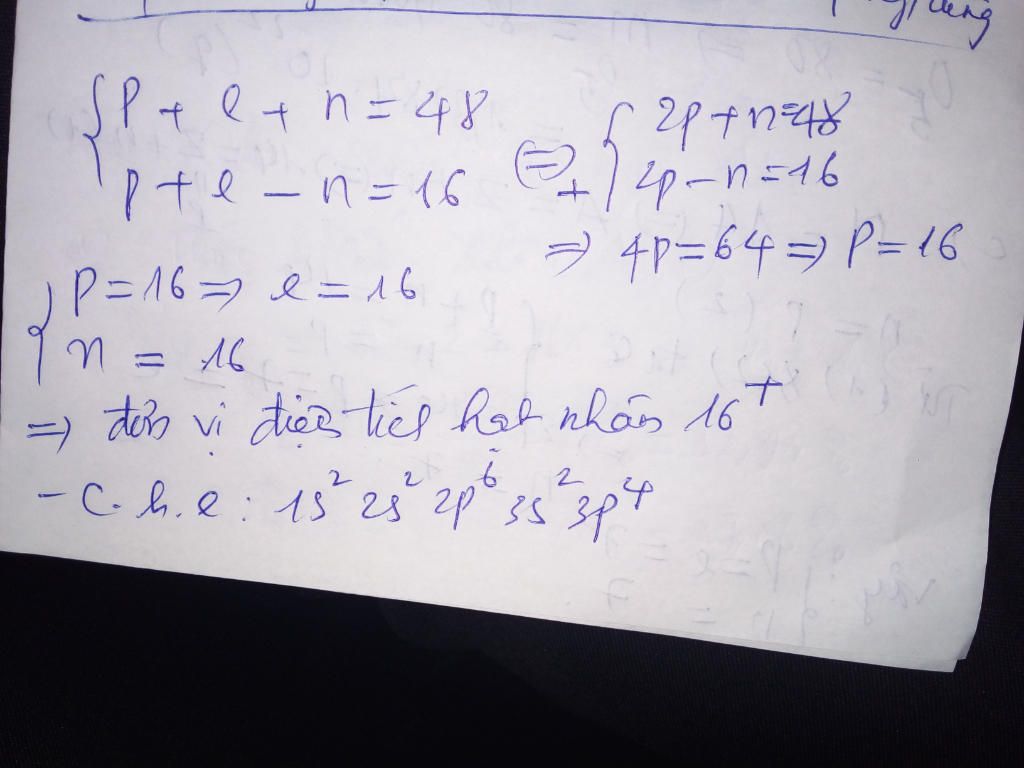 p + e + n = 48
p + e - n = 16
(=)
2p + n = 48
+ 2p - n = 16
=> 4p = 64 => p = 16
p = 16 => e = 16
n = 16
=> đơn vị điện tích hạt nhân 16+
- C.h.e : 1s² 2s² 2p⁶ 3s² 3p⁴